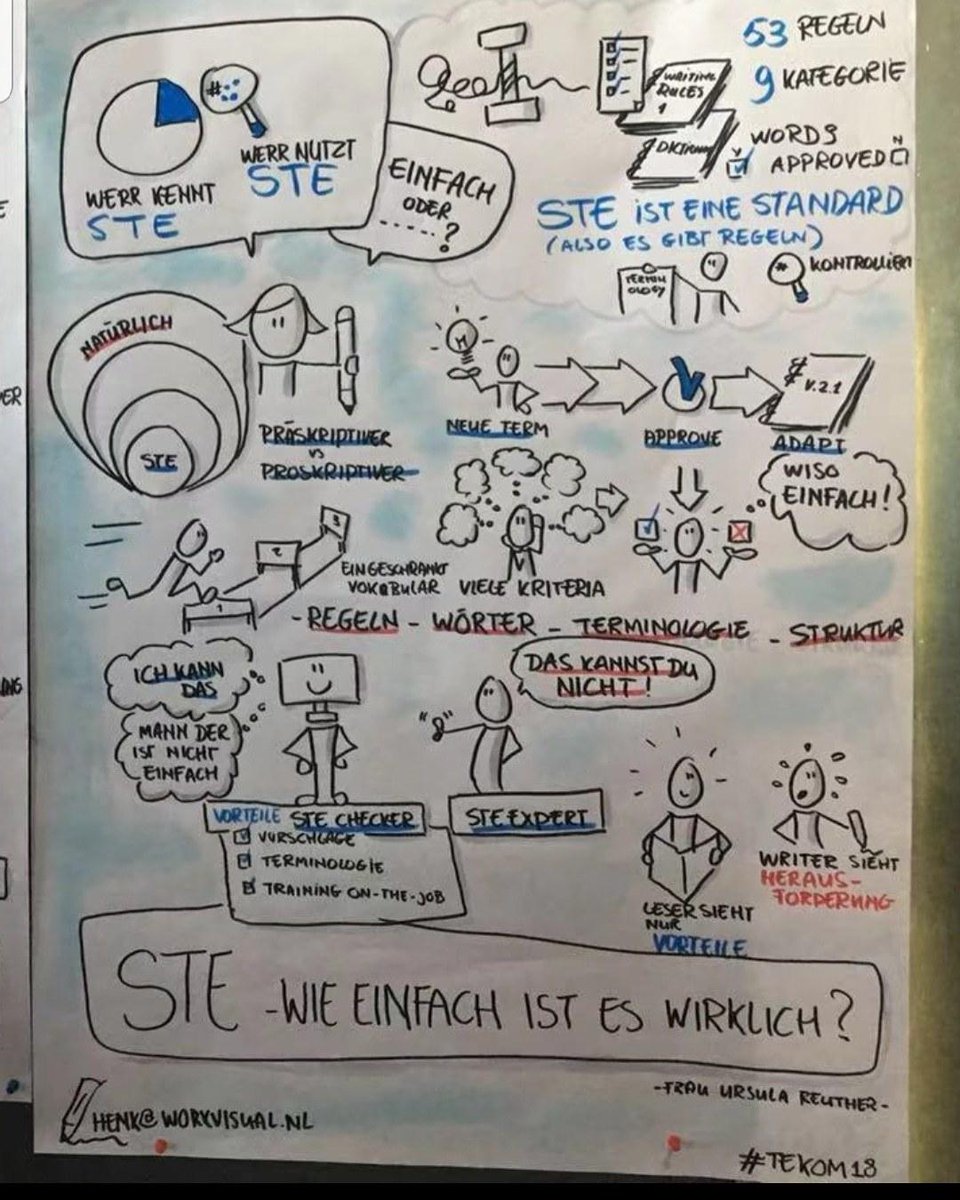 #
WERR KENNT
STE
WERR NUTZT
STE
EINFACH
ODER
------?
WRITING
RULES
1
53 REGELN
9 KATEGORIE
WORDS
APPROVED
STE IST EINE STANDARD
(ALSO ES GIBT REGELN)
TERMIN
OLOGY
#
KONTROLLIER
NATÜRLICH
STE
PRÄSKRIPTIVER
VS
PROSKRIPTIVER
NEUE TERM
APPROVE
V.2.1
ADAPT
WISO
EINFACH!
1
2
3
EINGESCHRANKT
VOKABULAR
VIELE KRITERIA
- REGELN - WÖRTER - TERMINOLOGIE - STRUKTUR
ICH KANN
DAS
MANN DER
IST NICHT
EINFACH
DAS KANNST DU
NICHT!
VORTEILE STE CHECKER
VORSCHLAGE
TERMINOLOGIE
TRAINING ON-THE-JOB
STE EXPERT
LESER SIEHT
NUR
VORTEILE
WRITER SIEHT
HERAUS-
FORDERUNG
STE - WIE EINFACH IST ES WIRKLICH?
- FRAU URSULA REUTHER -
HENK@WORKVISUAL.NL
#TEKOM18